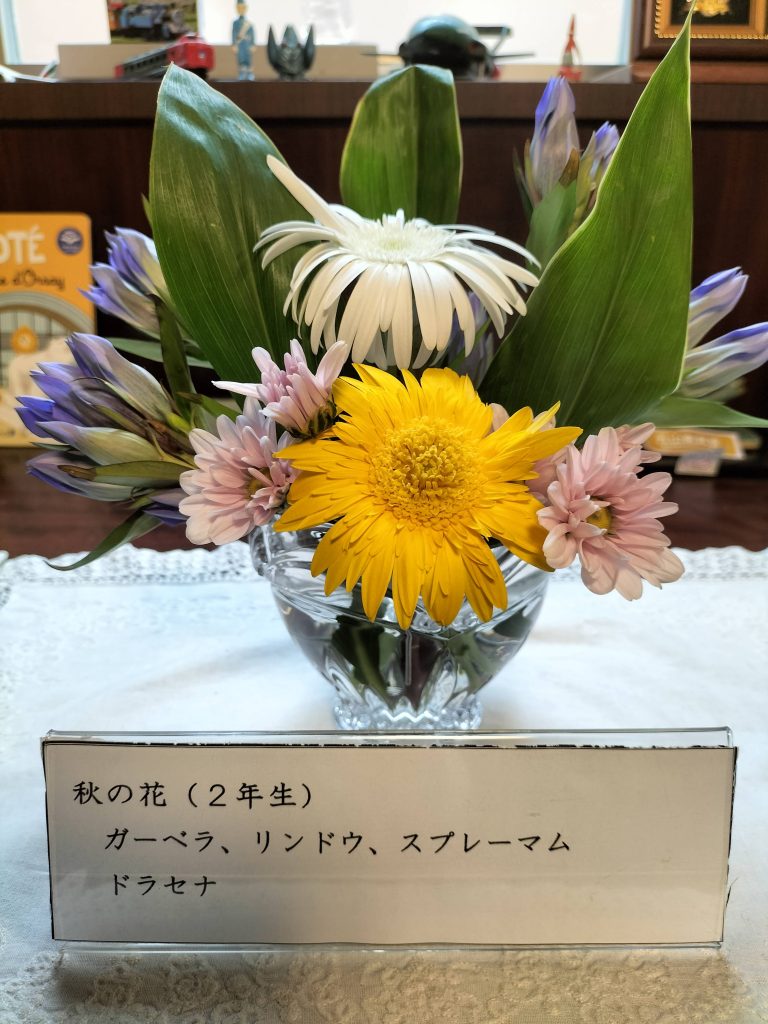 OTÉ
d'Orsay
秋の花（２年生）
ガーベラ、リンドウ、スプレーマム
ドラセナ